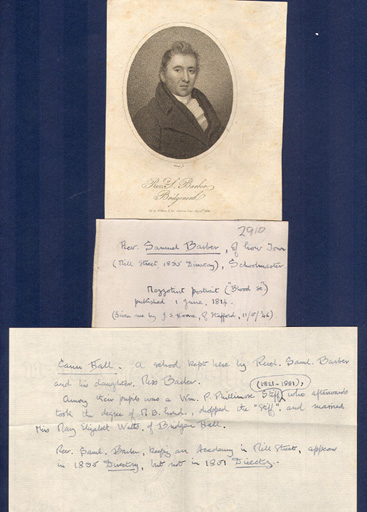 Rev. S. Barber
Bridgnorth
2910
Rev. Samuel Barber, of Low Town
(Mill Street 1835 Directory), Schoolmaster.
Mezzotint portrait (Blood sc)
published 1 June, 1814.
(Given me by
of Stafford, 11/5/46)
Cann Hall. A school kept here by Revd. Saml. Barber
and his daughter, Miss Barber.
Among their pupils was a Wm. P. Phillimore Stiff, who afterwards
(1853-1881)
took the degree of M.B. Lond., dropped the "Stiff", and married
Miss Mary Elizabeth Watts, of Bridgen Hall.
Rev. Saml. Barber, keeping an Academy in Mill Street, appears
in 1835 Directory, but not in 1851 Directory.